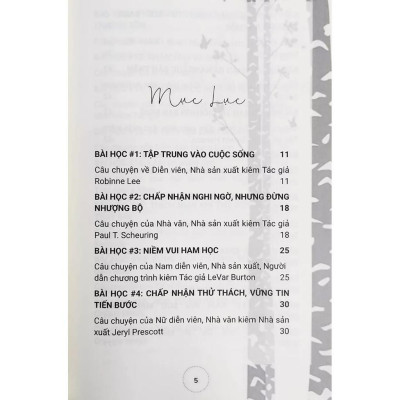 Mục Lục
BÀI HỌC #1: TẬP TRUNG VÀO CUỘC SỐNG 11
Câu chuyện về Diễn viên, Nhà sản xuất kiêm Tác giả
Robinne Lee 11
BÀI HỌC #2: CHẤP NHẬN NGHI NGỜ, NHƯNG ĐỪNG
NHƯỢNG BỘ 18
Câu chuyện của Nhà văn, Nhà sản xuất kiêm Tác giả
Paul T. Scheuring 18
BÀI HỌC #3: NIỀM VUI HAM HỌC 25
Câu chuyện của Nam diễn viên, Nhà sản xuất, Người
dẫn chương trình kiêm Tác giả LeVar Burton 25
BÀI HỌC #4: CHẤP NHẬN THỬ THÁCH, VỮNG TIN
TIẾN BƯỚC 30
Câu chuyện của Nữ diễn viên, Nhà văn kiêm Nhà sản
xuất Jeryl Prescott 30
5